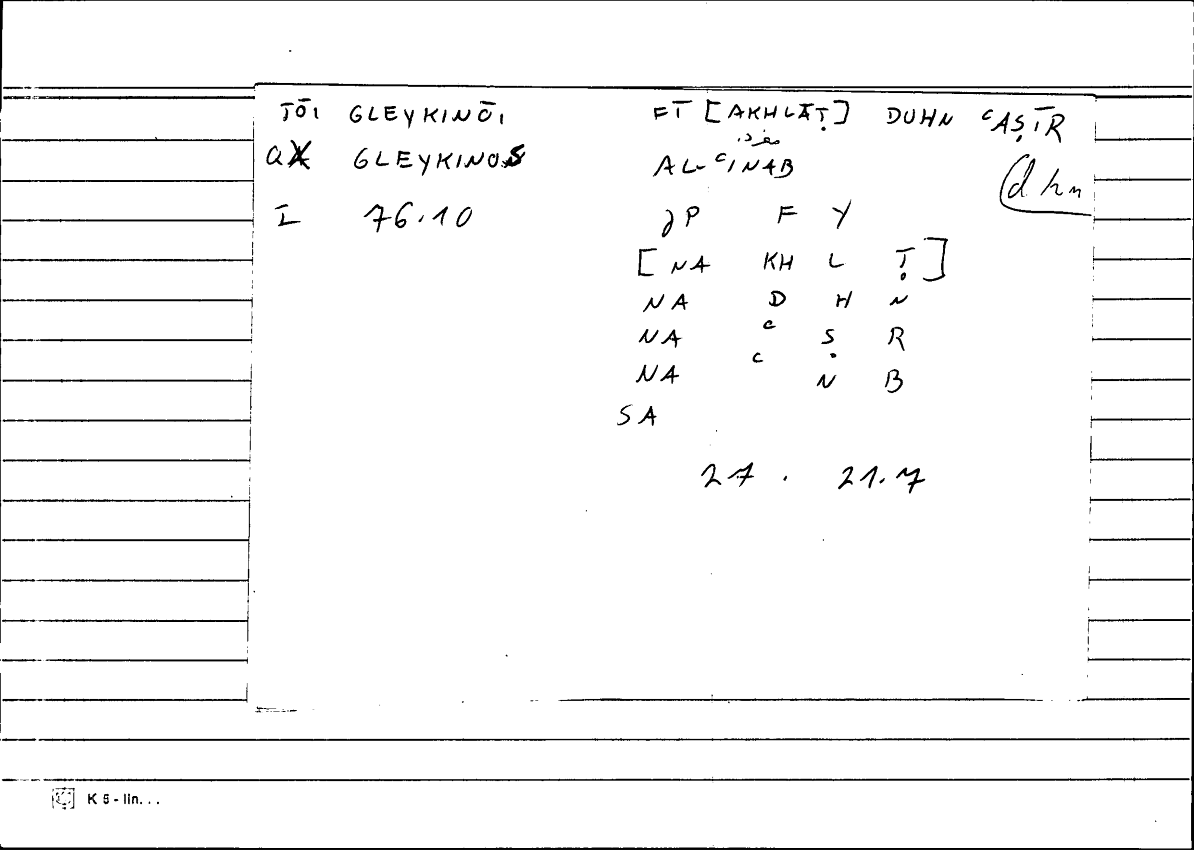 TŌI GLEYKINŌI FĪ [AKHLĀṬ] DUHN ᶜAṢĪR
مفرد
QX GLEYKINOS AL-ᶜINAB
dhn
I 76.10 JP F Y
[NA KH L Ṭ]
NA D H N
NA ᶜ Ṣ R
NA ᶜ N B
SA
27 . 21.7
K 5 - lin. . .